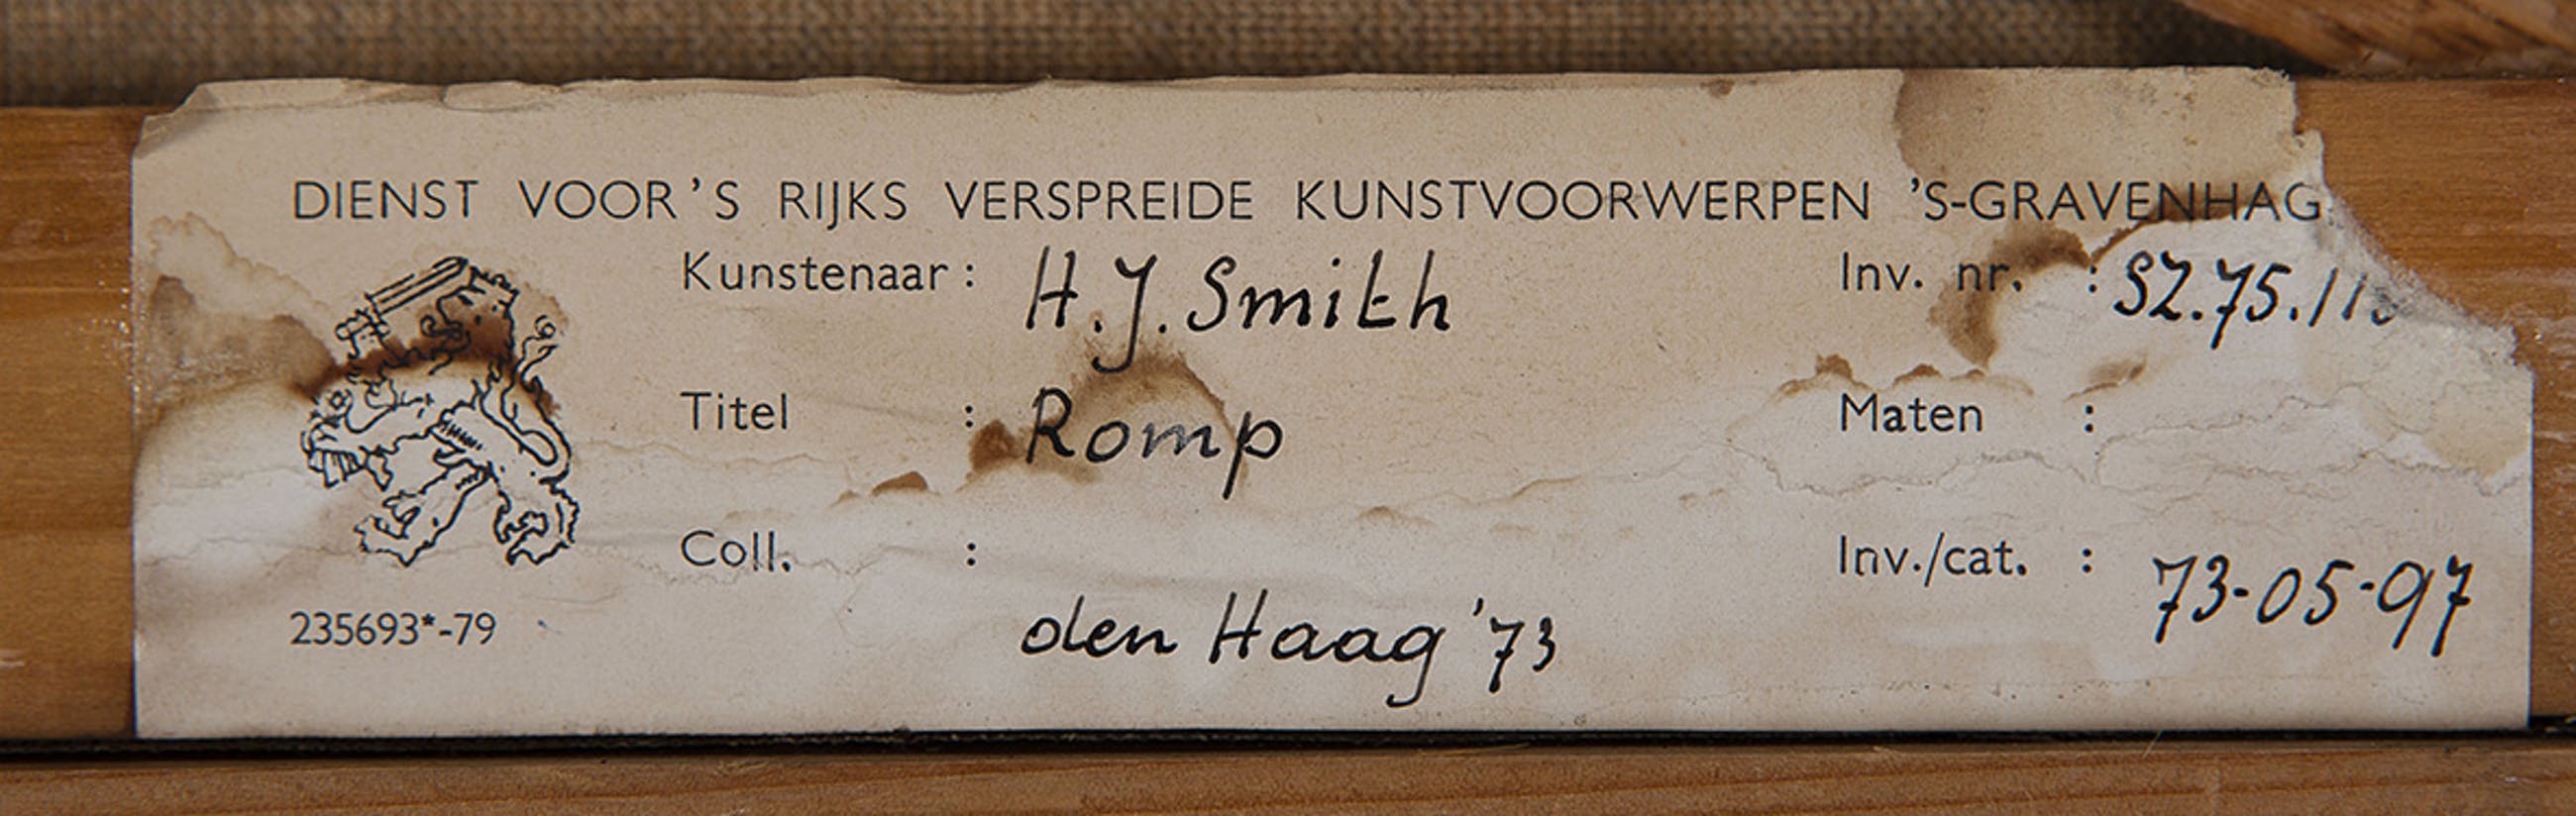 DIENST VOOR 'S RIJKS VERSPREIDE KUNSTVOORWERPEN 'S-GRAVENHAG
Kunstenaar : H.J. Smith Inv. nr. :
Titel : Romp Maten :
Coll. : Inv./cat. : 73-05-97
den Haag '73
235693*-79